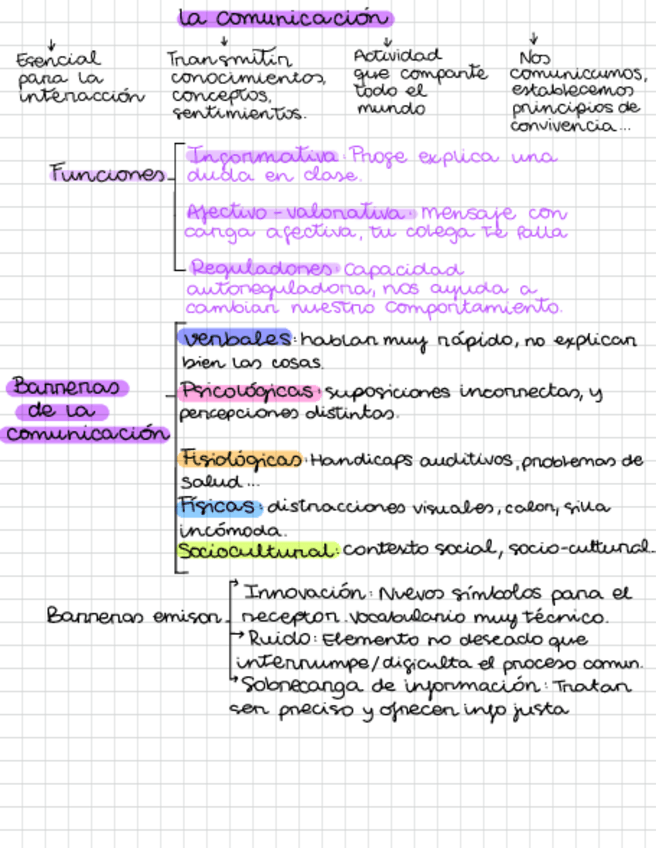 la comunicación
Esencial
para la
interacción
Transmitir
conocimientos,
conceptos,
sentimientos.
Actividad
que comparte
todo el
mundo
Nos
comunicamos,
establecemos
principios de
convivencia...
Funciones
Informativa: Profe explica una
duda en clase.
Afectivo-valorativa: mensaje con
carga afectiva, tu colega te falla
Reguladores: capacidad
autoreguladora, nos ayuda a
cambiar nuestro comportamiento.
Barreras
de la
comunicación
verbales: hablar muy rápido, no explicar
bien las cosas.
Psicológicas: suposiciones incorrectas, y
percepciones distintas.
Fisiológicas: Handicaps auditivos, problemas de
salud...
Físicas: distracciones visuales, calor, silla
incómoda.
Sociocultural: contexto social, socio-cultural.
Barreras emisor
Innovación: Nuevos símbolos para el
receptor. vocabulario muy técnico.
Ruido: Elemento no deseado que
interrumpe/dificulta el proceso comun.
Sobrecarga de información: Tratar
ser preciso y ofrecer info justa